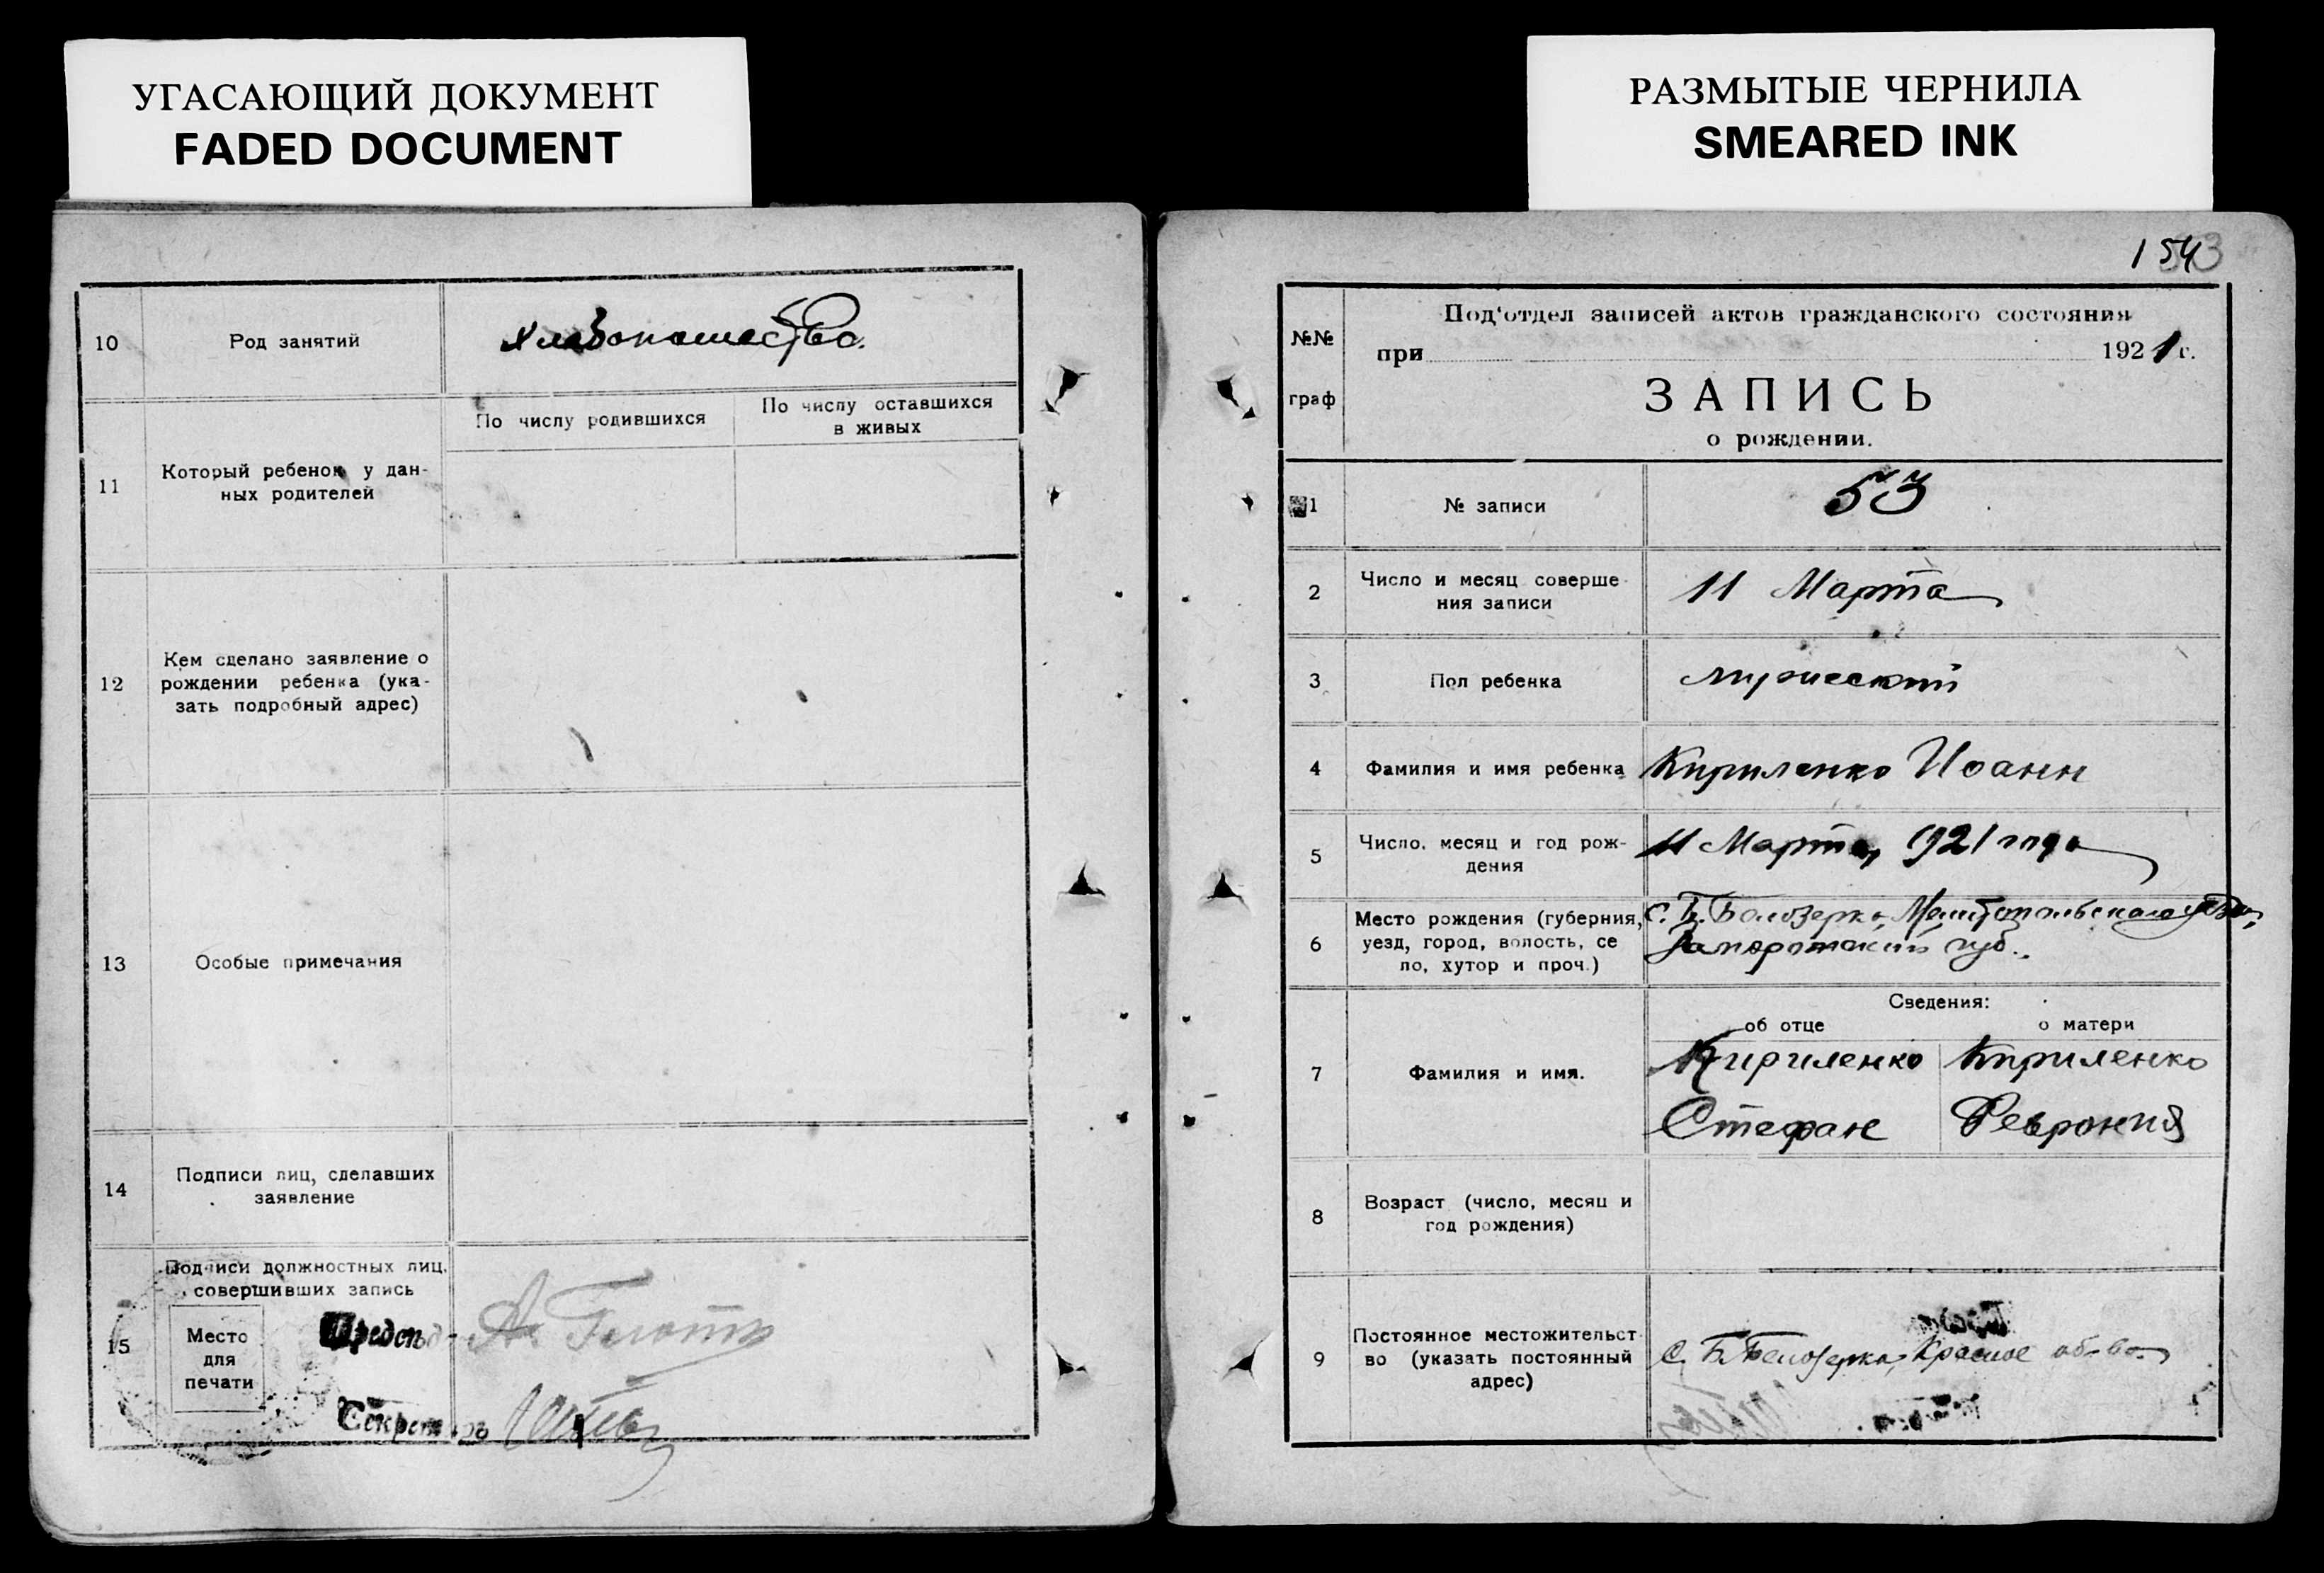 УГАСАЮЩИЙ ДОКУМЕНТ
FADED DOCUMENT
РАЗМЫТЫЕ ЧЕРНИЛА
SMEARED INK
10
Род занятий
хлебопашество.
11
Который ребенок у дан-
ных родителей
По числу родившихся
По числу оставшихся
в живых
12
Кем сделано заявление о
рождении ребенка (ука-
зать подробный адрес)
13
Особые примечания
14
Подписи лиц, сделавших
заявление
15
Подписи должностных лиц,
совершивших запись
Место
для
печати
Предсѣд-
Секретарь
154
№№
граф
Под'отдел записей актов гражданского состояния
при 1921 г.
ЗАПИСЬ
о рождении.
1
№ записи
53
2
Число и месяц соверше-
ния записи
11 Марта
3
Пол ребенка
мужеский
4
Фамилия и имя ребенка
Кириленко Иоанн
5
Число, месяц и год рож-
дения
11 Марта, 1921 года
6
Место рождения (губерния,
уезд, город, волость, се
ло, хутор и проч.)
с. Б. Белозерка, Мелитопольскаго уезда,
Запорожский губ.
Сведения:
об отце
о матери
7
Фамилия и имя.
Кириленко
Стефан
Кириленко
Феврония
8
Возраст (число, месяц и
год рождения)
9
Постоянное местожительст
во (указать постоянный
адрес)
С. Б. Белозерка, Красное об-во